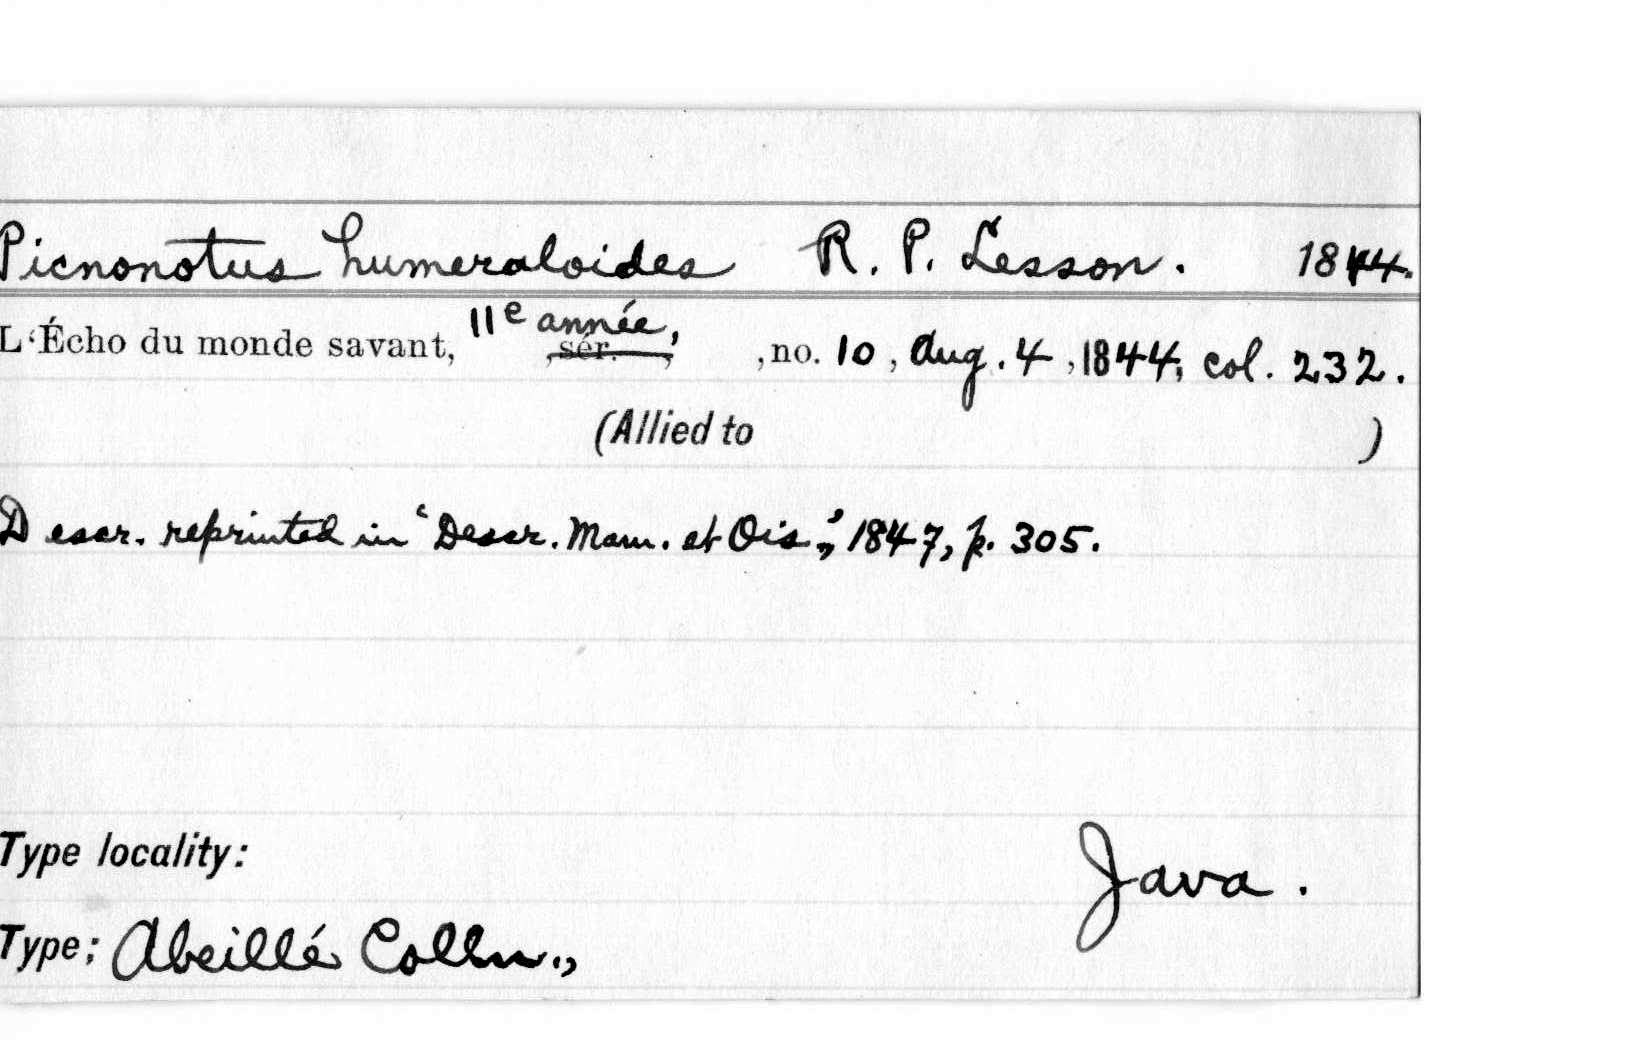 Picnonotus humeraloides R. P. Lesson. 1844.
L'Écho du monde savant, 11e année, sér. , , no. 10, Aug. 4, 1844, col. 232.
(Allied to )
Descr. reprinted in 'Descr. Mam. et Ois.,' 1847, p. 305.
Type locality: Java.
Type; Abeillé Colln.,